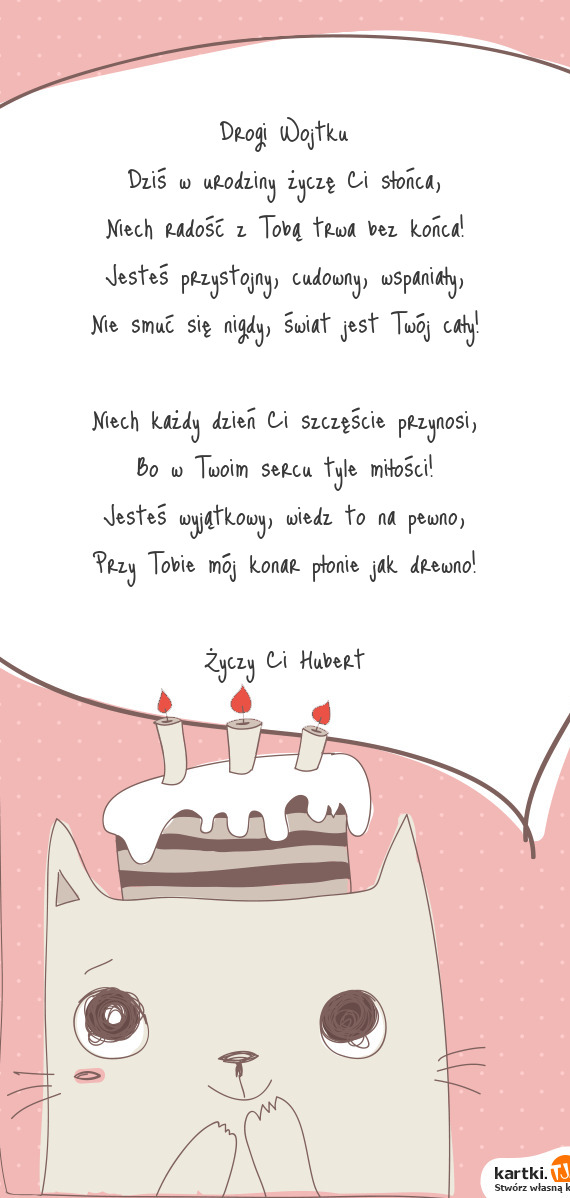 Drogi Wojtku
Dziś w urodziny życzę Ci słońca,
Niech radość z Tobą trwa bez końca!
Jesteś przystojny, cudowny, wspaniały,
Nie smuć się nigdy, świat jest Twój cały!
Niech każdy dzień Ci szczęście przynosi,
Bo w Twoim sercu tyle miłości!
Jesteś wyjątkowy, wiedz to na pewno,
Przy Tobie mój konar płonie jak drewno!
Życzy Ci Hubert
kartki.TJ
Stwórz własną k